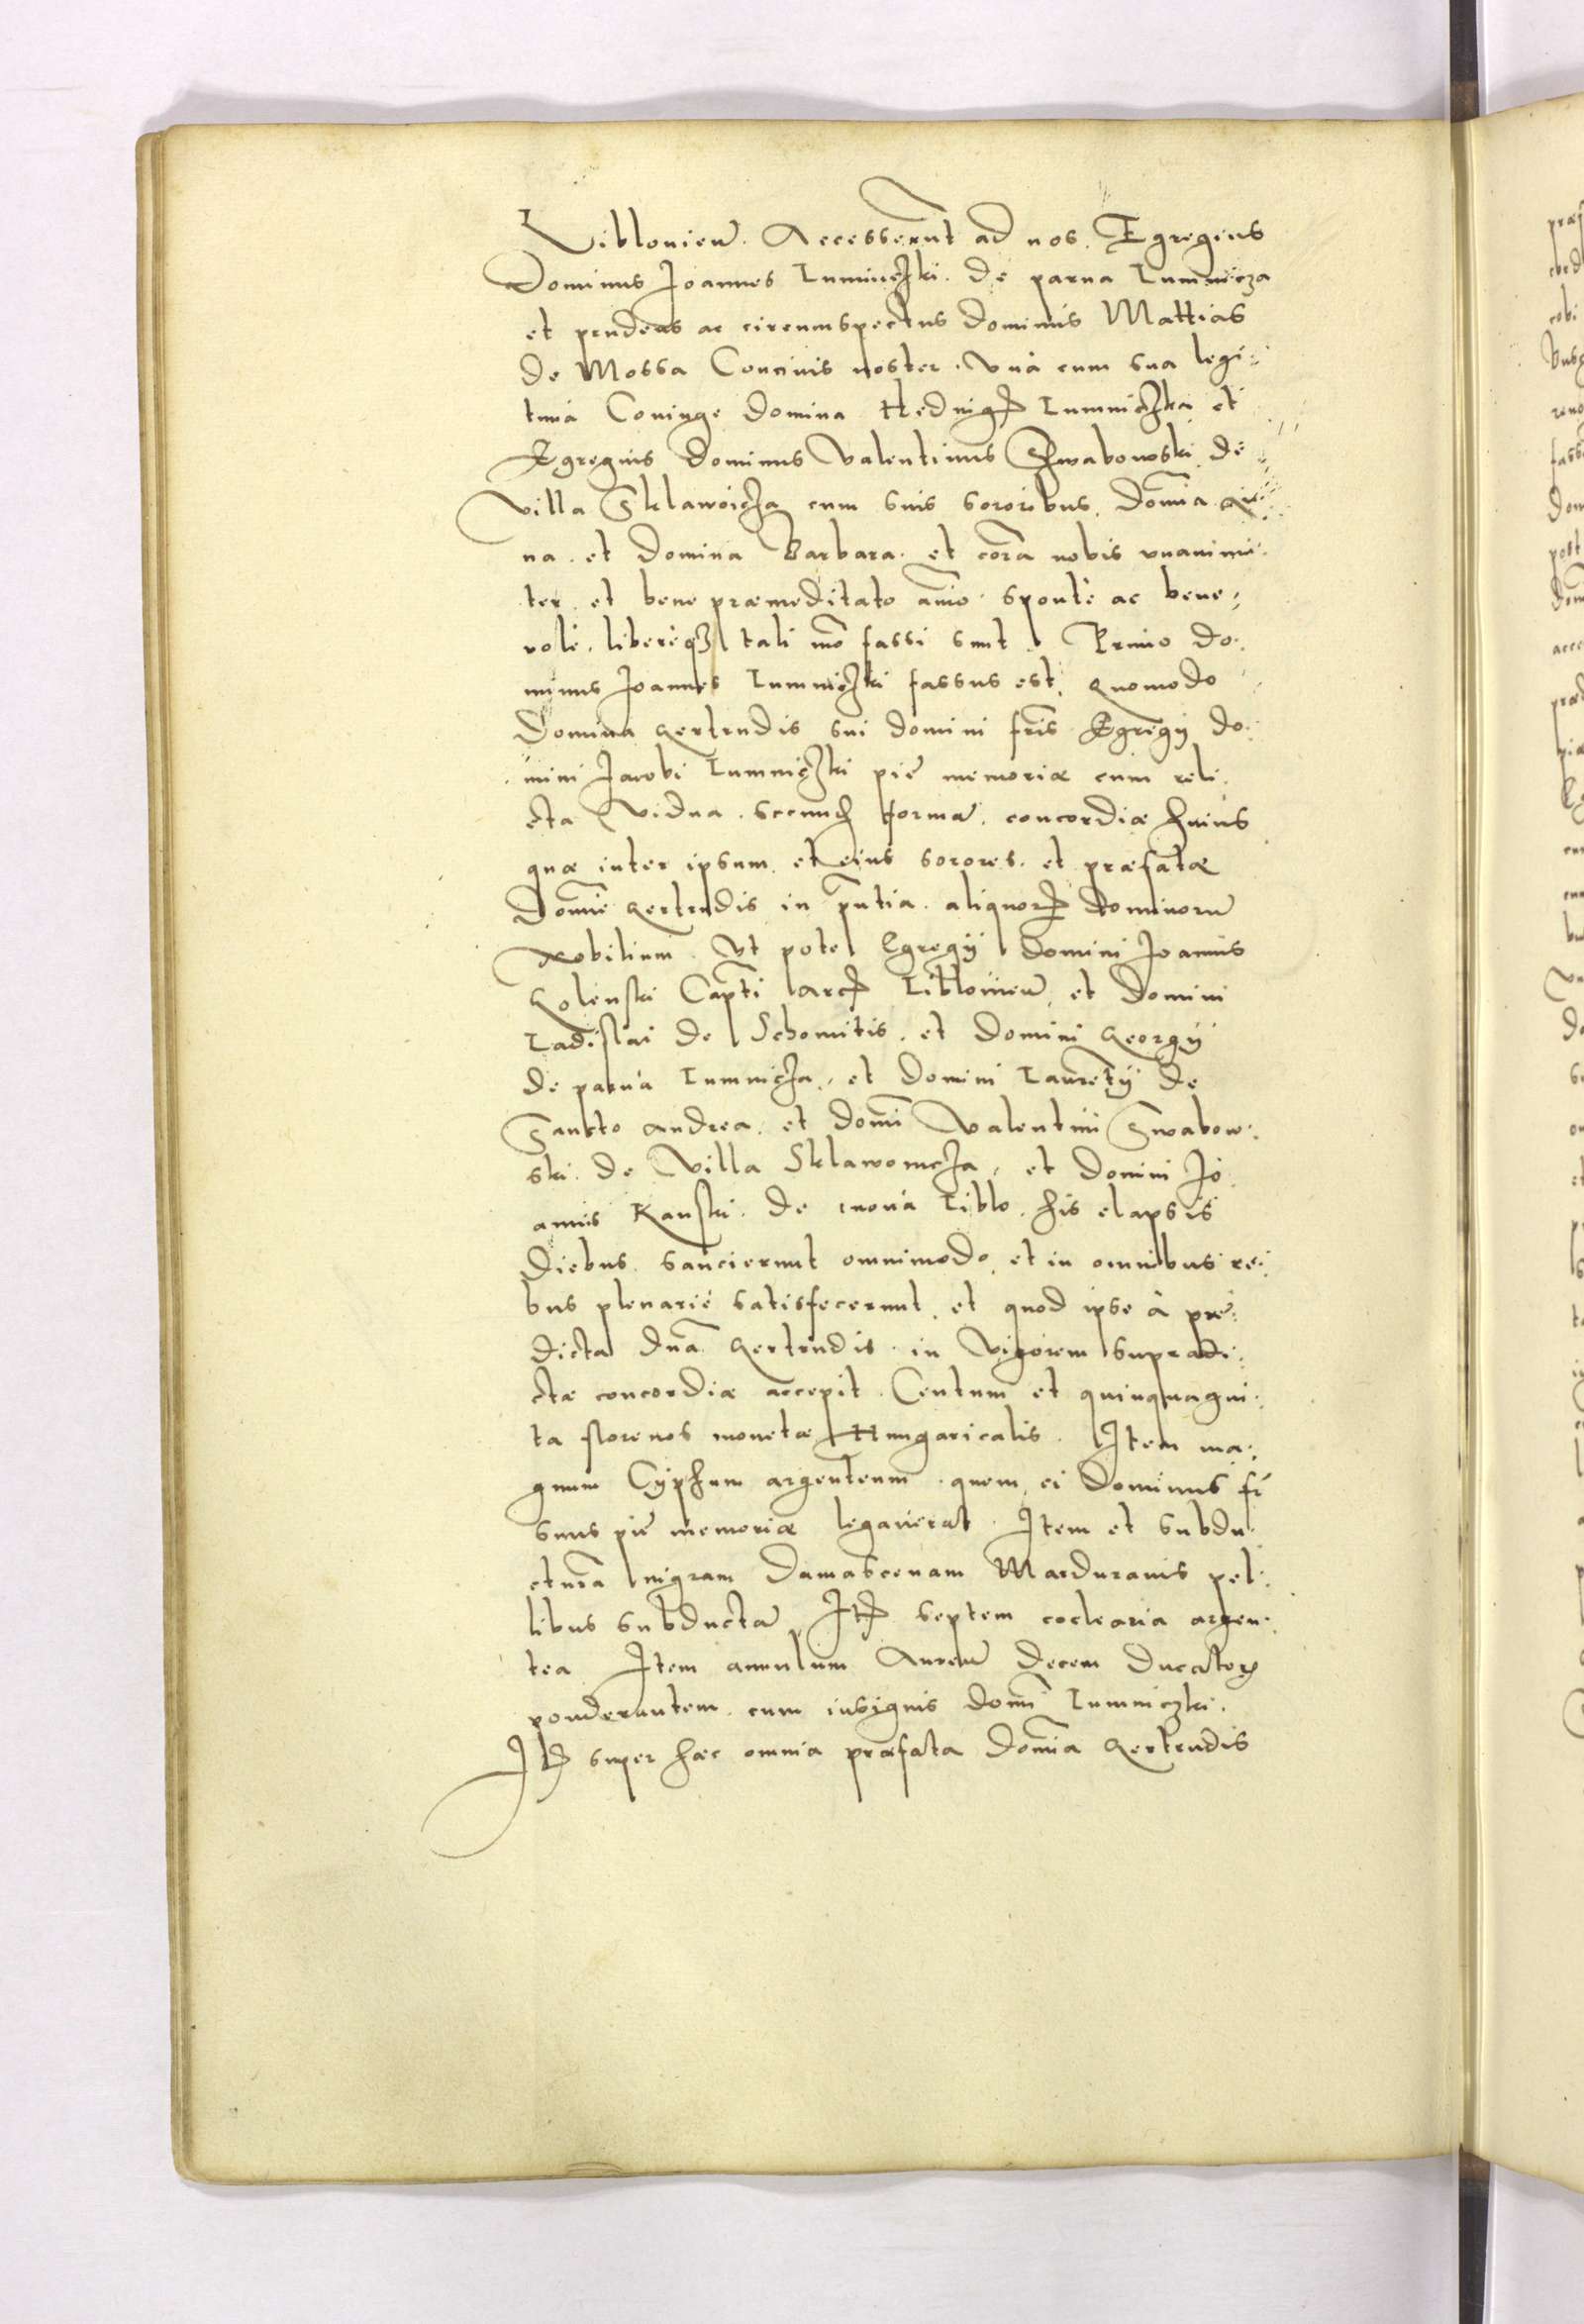 Liblouień. Accesserūnt ad nos. Egregius
Dominus Joannes Lumniczki. de parua Lumnicza
et prudens ac circumspectus dominus Mattias
de Mossa Conciuis noster. Vnà cum sua legi:
tima Coniuge domina Heduige Lumniczka et
Egregius dominus Valentinus Swabowski de
villa Sklawoicza cum suis sororibus. Domīa
na. et Domina Barbara. et corā nobis vnanimi:
ter. et bene præmeditato aīo sponte ac bene:
volè. libereq3 tali mō fassi sunt. Primo do:
minus Joannes Lumniczki fassus est, Quomodo
Domina Gertrudis sui domini frīs Egregij do:
mini Jacobi Lumniczki pię memoriæ cum reli:
cta Vidua. secund formā. concordiæ huius
quæ inter ipsum et eius sorores. et præfatæ
Domīe Gertrudis in pn̄tia. aliquor dominorū
Nobilium. Vt pote Egregij Domini Joannis
Golenski Capt̄i Arc Liblouień, et Domini
Ladislai de Schomitis. et domini Georgij
de parua Lumnicza, et Domini Laurentij de
Sancto Andrea. et domī Valentini Swabow:
ski. de Villa Sklawomcza, et Domini Jo:
annis Kanski. de noua Liblo. his elapsis
Diebus. sancierunt omnimodo, et in omnibus re:
bus plenariè satisfecerunt, et quod ipse à præ:
dicta Dnā Gertrudis in Vigorem supradi:
ctæ concordiæ accepit. Centum et quinquagin:
ta florenos monetæ Hungaricalis. Item ma:
gnum Cyphum argenteum. quem ei Dominus fr̄
suus pię memoriæ legauerat. Item et subdu:
cturā nigram Damascenam Marduranis pel:
libus subductā, It septem coclearia argen:
tea Item annulum Aureū decem ducator
ponderantem. cum insignis domī Lumniczki.
It super hæc omnia præfata Domīa Gertrudis